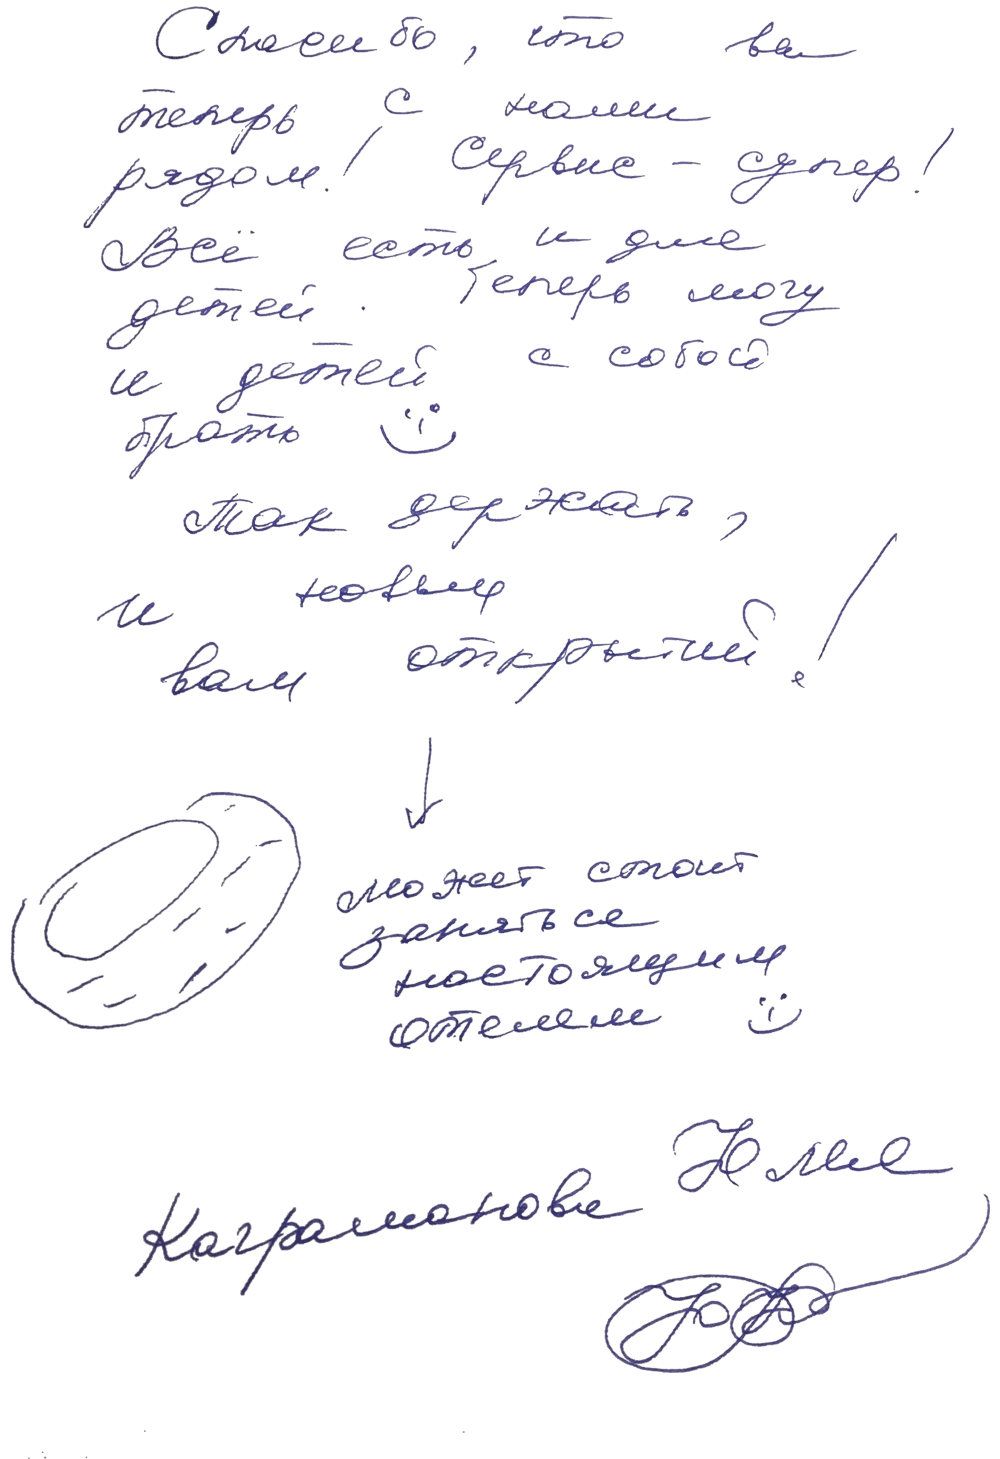 Спасибо, что вы
теперь с нами
рядом! Сервис - супер!
Всё есть и для
детей. Теперь могу
и детей с собой
брать
Так держать,
и новых
вам открытий!
Может стоит
заняться
настоящим
отелем
Каграманова Юлия